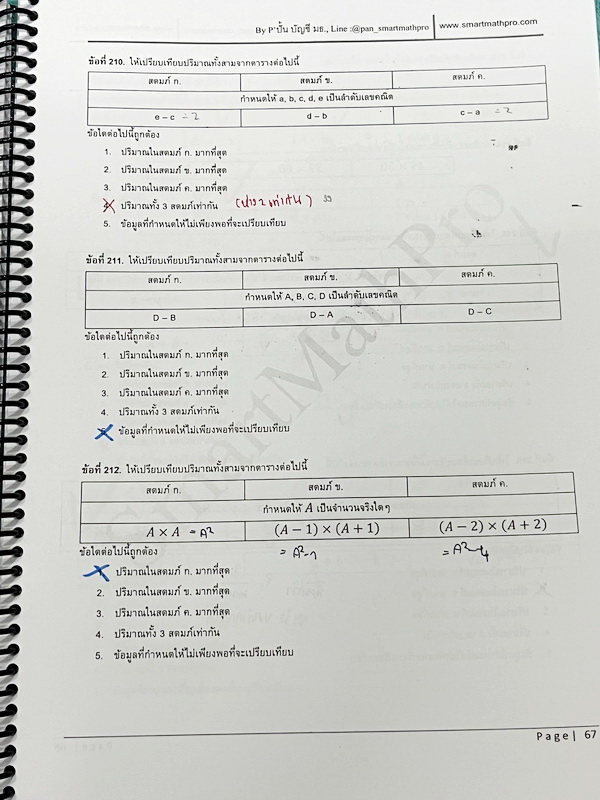 By P'ปั้น บัญชี มธ., Line :@pan_smartmathpro www.smartmathpro.com
ข้อที่ 210. ให้เปรียบเทียบปริมาณทั้งสามจากตารางต่อไปนี้
สดมภ์ ก. สดมภ์ ข. สดมภ์ ค.
กำหนดให้ a, b, c, d, e เป็นลำดับเลขคณิต
e – c = 2 d – b c – a = 2
ข้อใดต่อไปนี้ถูกต้อง
1. ปริมาณในสดมภ์ ก. มากที่สุด
2. ปริมาณในสดมภ์ ข. มากที่สุด
3. ปริมาณในสดมภ์ ค. มากที่สุด
4. ปริมาณทั้ง 3 สดมภ์เท่ากัน
5. ข้อมูลที่กำหนดให้ไม่เพียงพอที่จะเปรียบเทียบ
ข้อที่ 211. ให้เปรียบเทียบปริมาณทั้งสามจากตารางต่อไปนี้
สดมภ์ ก. สดมภ์ ข. สดมภ์ ค.
กำหนดให้ A, B, C, D เป็นลำดับเลขคณิต
D – B D – A D – C
ข้อใดต่อไปนี้ถูกต้อง
1. ปริมาณในสดมภ์ ก. มากที่สุด
2. ปริมาณในสดมภ์ ข. มากที่สุด
3. ปริมาณในสดมภ์ ค. มากที่สุด
4. ปริมาณทั้ง 3 สดมภ์เท่ากัน
ข้อมูลที่กำหนดให้ไม่เพียงพอที่จะเปรียบเทียบ
ข้อที่ 212. ให้เปรียบเทียบปริมาณทั้งสามจากตารางต่อไปนี้
สดมภ์ ก. สดมภ์ ข. สดมภ์ ค.
กำหนดให้ A เป็นจำนวนจริงใดๆ
A × A = A² (A − 1) × (A + 1) (A − 2) × (A + 2)
= A²-1 = A²-4
ข้อใดต่อไปนี้ถูกต้อง
ปริมาณในสดมภ์ ก. มากที่สุด
2. ปริมาณในสดมภ์ ข. มากที่สุด
3. ปริมาณในสดมภ์ ค. มากที่สุด
4. ปริมาณทั้ง 3 สดมภ์เท่ากัน
5. ข้อมูลที่กำหนดให้ไม่เพียงพอที่จะเปรียบเทียบ
SmartMathPro
Page| 67